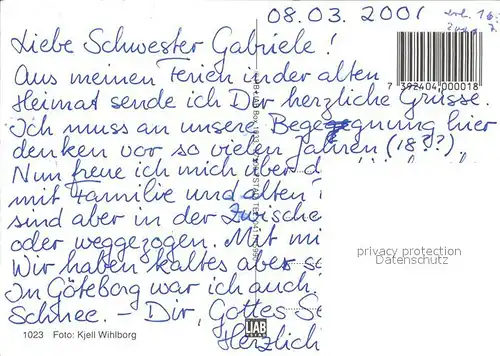 08.03.2001
Liebe Schwester Gabriele!
Aus meinen Ferien in der alten
7 392404 000018
Heimat sende ich Dir herzliche Grüsse.
Ich muss an unsere Begegnung hier
denken vor so vielen Jahren (18??).
Nun freue ich mich über d
mit Familie und alten
sind aber in der Zwische
oder weggezogen. Mit mi
privacy protection
Datenschutz
Wir haben kaltes aber sc
In Göteborg war ich auch.
Schnee. – Dir, Gottes Se
1023 Foto: Kjell Wihlborg
LIAB
Herzlich